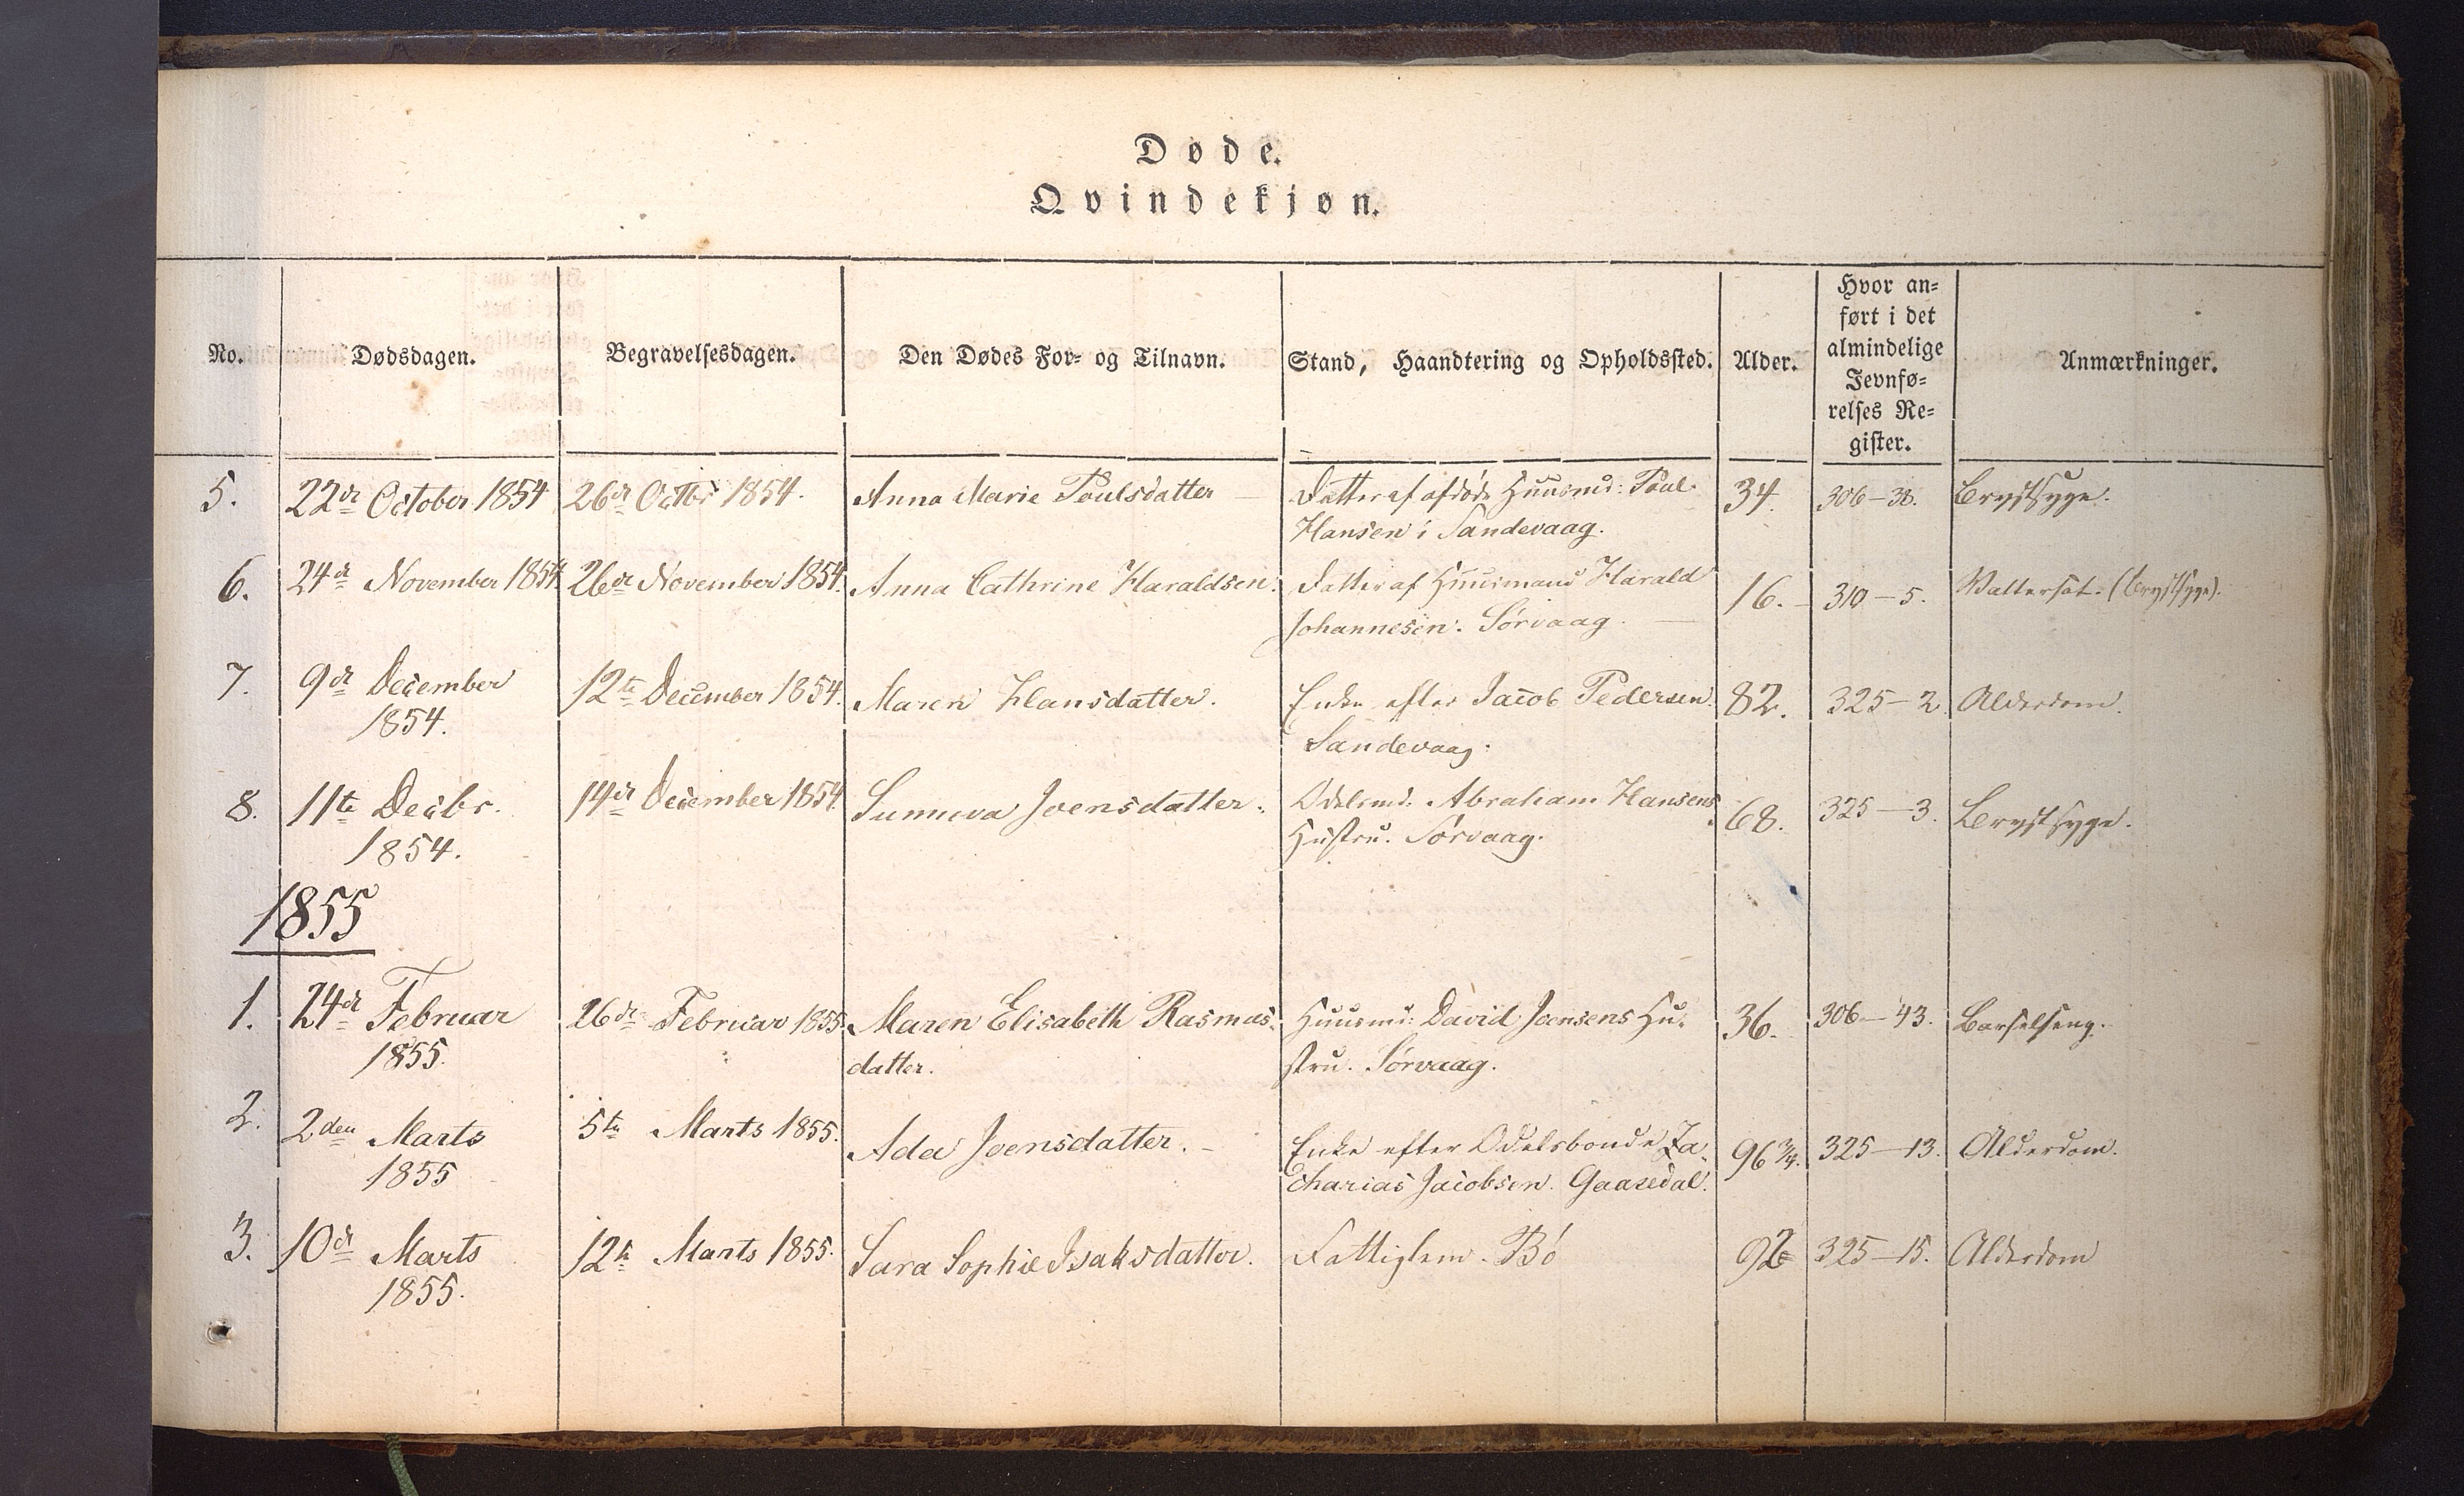 Døde.
Qvindekjøn.
No.
Dødsdagen.
Begravelsesdagen.
Den Dødes For- og Tilnavn.
Stand, Haandtering og Opholdssted.
Alder.
Hvor an-
ført i det
almindelige
Jevnfø-
relses Re-
gister.
Anmærkninger.
5. 22de October 1854 26de Octbr 1854. Anna Marie Poulsdatter — Datter af afdøde Huusmd: Poul 34. 306-38. Brystsyge.
Hansen i Sandevaag.
6. 24de November 1854. 26de November 1854. Anna Cathrine Haraldsen. Datter af Huusmand Harald 16. 310-5. Vattersot. (Brystsyge).
Johannesen. Sørvaag. —
7. 9de December 12te December 1854. Maren Hansdatter. Enke efter Jacob Pedersen. 82. 325-2. Alderdom.
1854. Sandevaag.
8. 11te Decbr. 14de December 1854. Sunneva Joensdatter. Odelsmd: Abraham Hansens 68. 325-3. Brystsyge.
1854. Hustru. Sørvaag.
1855
1. 24de Februar 26de Februar 1855. Maren Elisabeth Rasmus- Huusmd: David Joensens Hu- 36. 306-43. Barselseng.
1855. datter. stru. Sørvaag.
2. 2den Marts 5te Marts 1855. Ada Joensdatter. - Enke efter Odelsbonde Za- 96 3/4. 325-13. Alderdom.
1855 charias Jacobsen. Gaasedal.
3. 10de Marts 12te Marts 1855. Sara Sophie Isaksdatter. Fattiglem. Bö 92 325-15. Alderdom
1855.